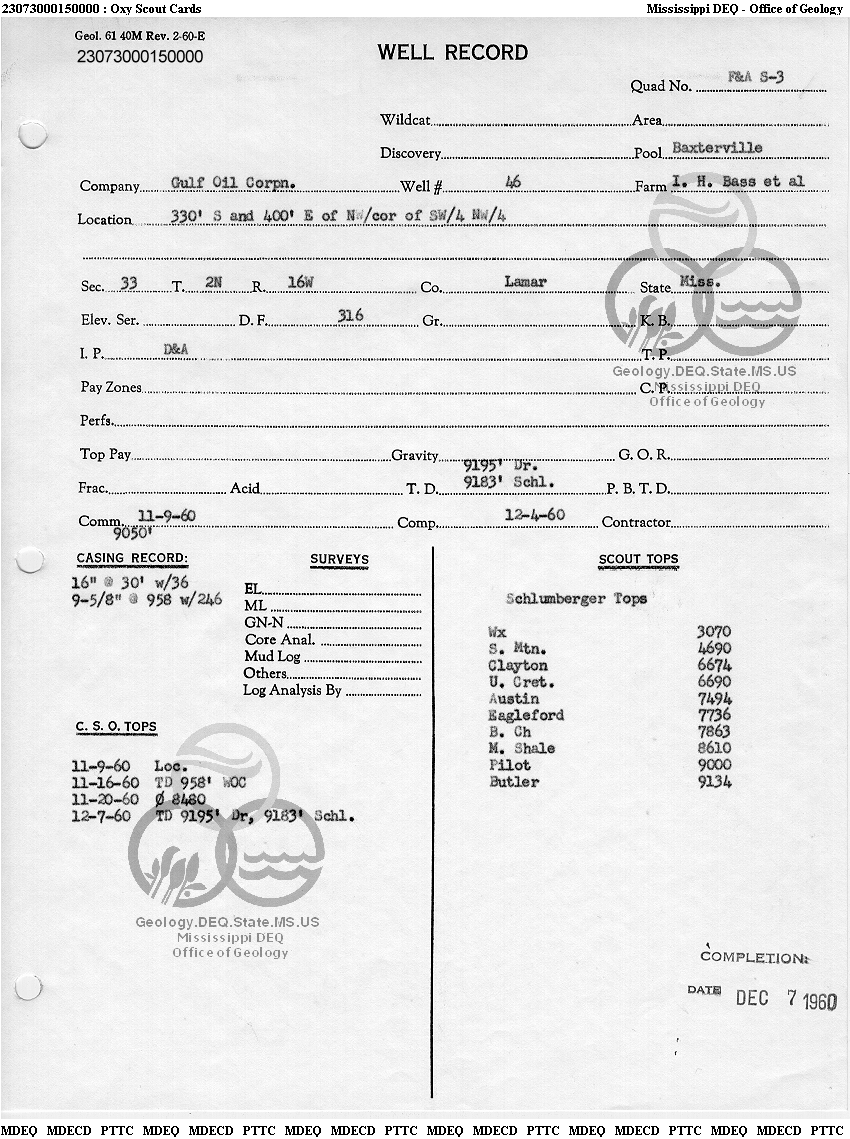 23073000150000 : Oxy Scout Cards Mississippi DEQ - Office of Geology
Geol. 61 40M Rev. 2-60-E
23073000150000
WELL RECORD
Quad No. F&A S-3
Wildcat Area
Discovery Pool Baxterville
Company Gulf Oil Corpn. Well # 46 Farm I. H. Bass et al
Location 330' S and 400' E of NW/cor of SW/4 NW/4
Sec. 33 T. 2N R. 16W Co. Lamar State Miss.
Elev. Ser. D. F. 316 Gr. K. B.
I. P. D&A T. P.
Geology.DEQ.State.MS.US
Pay Zones C. P.
Mississippi DEQ
Office of Geology
Perfs.
Top Pay Gravity G. O. R.
9195' Dr.
Frac. Acid T. D. 9183' Schl. P. B. T. D.
Comm. 11-9-60 Comp. 12-4-60 Contractor
9050'
CASING RECORD:
16" @ 30' w/36
9-5/8" @ 958 w/246
SURVEYS
EL
ML
GN-N
Core Anal.
Mud Log
Others
Log Analysis By
C. S. O. TOPS
11-9-60 Loc.
11-16-60 TD 958' WOC
11-20-60 Ø 8480
12-7-60 TD 9195' Dr, 9183' Schl.
Geology.DEQ.State.MS.US
Mississippi DEQ
Office of Geology
SCOUT TOPS
Schlumberger Tops
Wx 3070
S. Mtn. 4690
Clayton 6674
U. Cret. 6690
Austin 7494
Eagleford 7736
B. Ch 7863
M. Shale 8610
Pilot 9000
Butler 9134
COMPLETION:
DATE DEC 7 1960
MDEQ MDECD PTTC MDEQ MDECD PTTC MDEQ MDECD PTTC MDEQ MDECD PTTC MDEQ MDECD PTTC MDEQ MDECD PTTC